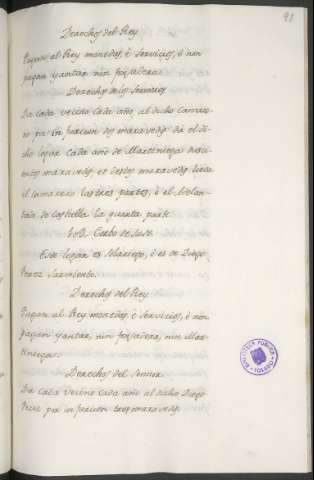 91
Derechos del Rey
Pagan al Rey monedas, è servicios, è non
pagan yantar nin fonsadera.
Derechos de los Señores
Da cada vecino cada año, al dicho Camare-
ro por infurcion dos maravedis: dà el di-
cho logar cada año de Martiniega docien-
tos maravedis, et destos maravedis lieva
el Camarero las tres partes, è el Adelan-
tado de Castiella la quarta parte.
Este logar es Abadengo, è es de Diego
Perez Sarmiento.
Derechos del Rey
Pagan al Rey monedas, è servicios, è non
pagan yantar, nin fonsadera, nin Mar-
tiniega.
Derechos del Señor
Da cada vecino cada año al dicho Diego
Perez por infurcion tres maravedis.
BIBLIOTECA PUBLICA TOLEDO